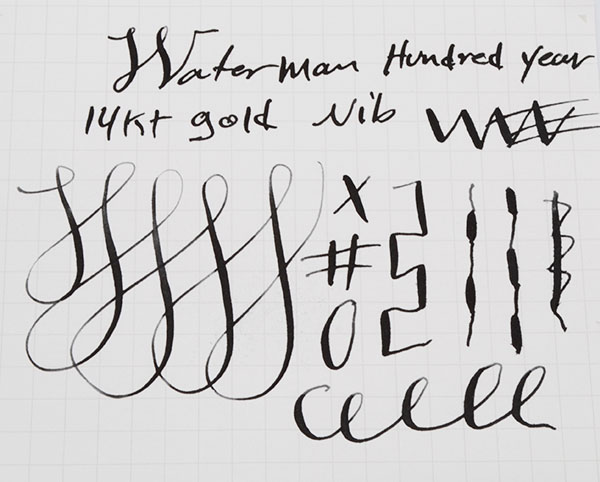 Waterman Hundred Year
14kt gold Nib
X
#
O